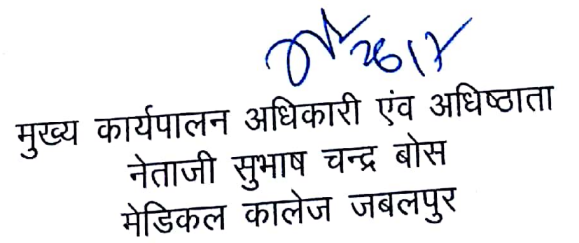 26/7
मुख्य कार्यपालन अधिकारी एंव अधिष्ठाता
नेताजी सुभाष चन्द्र बोस
मेडिकल कालेज जबलपुर